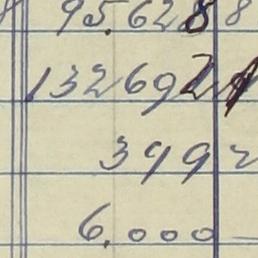 95.628 8
132692
3992
6.000